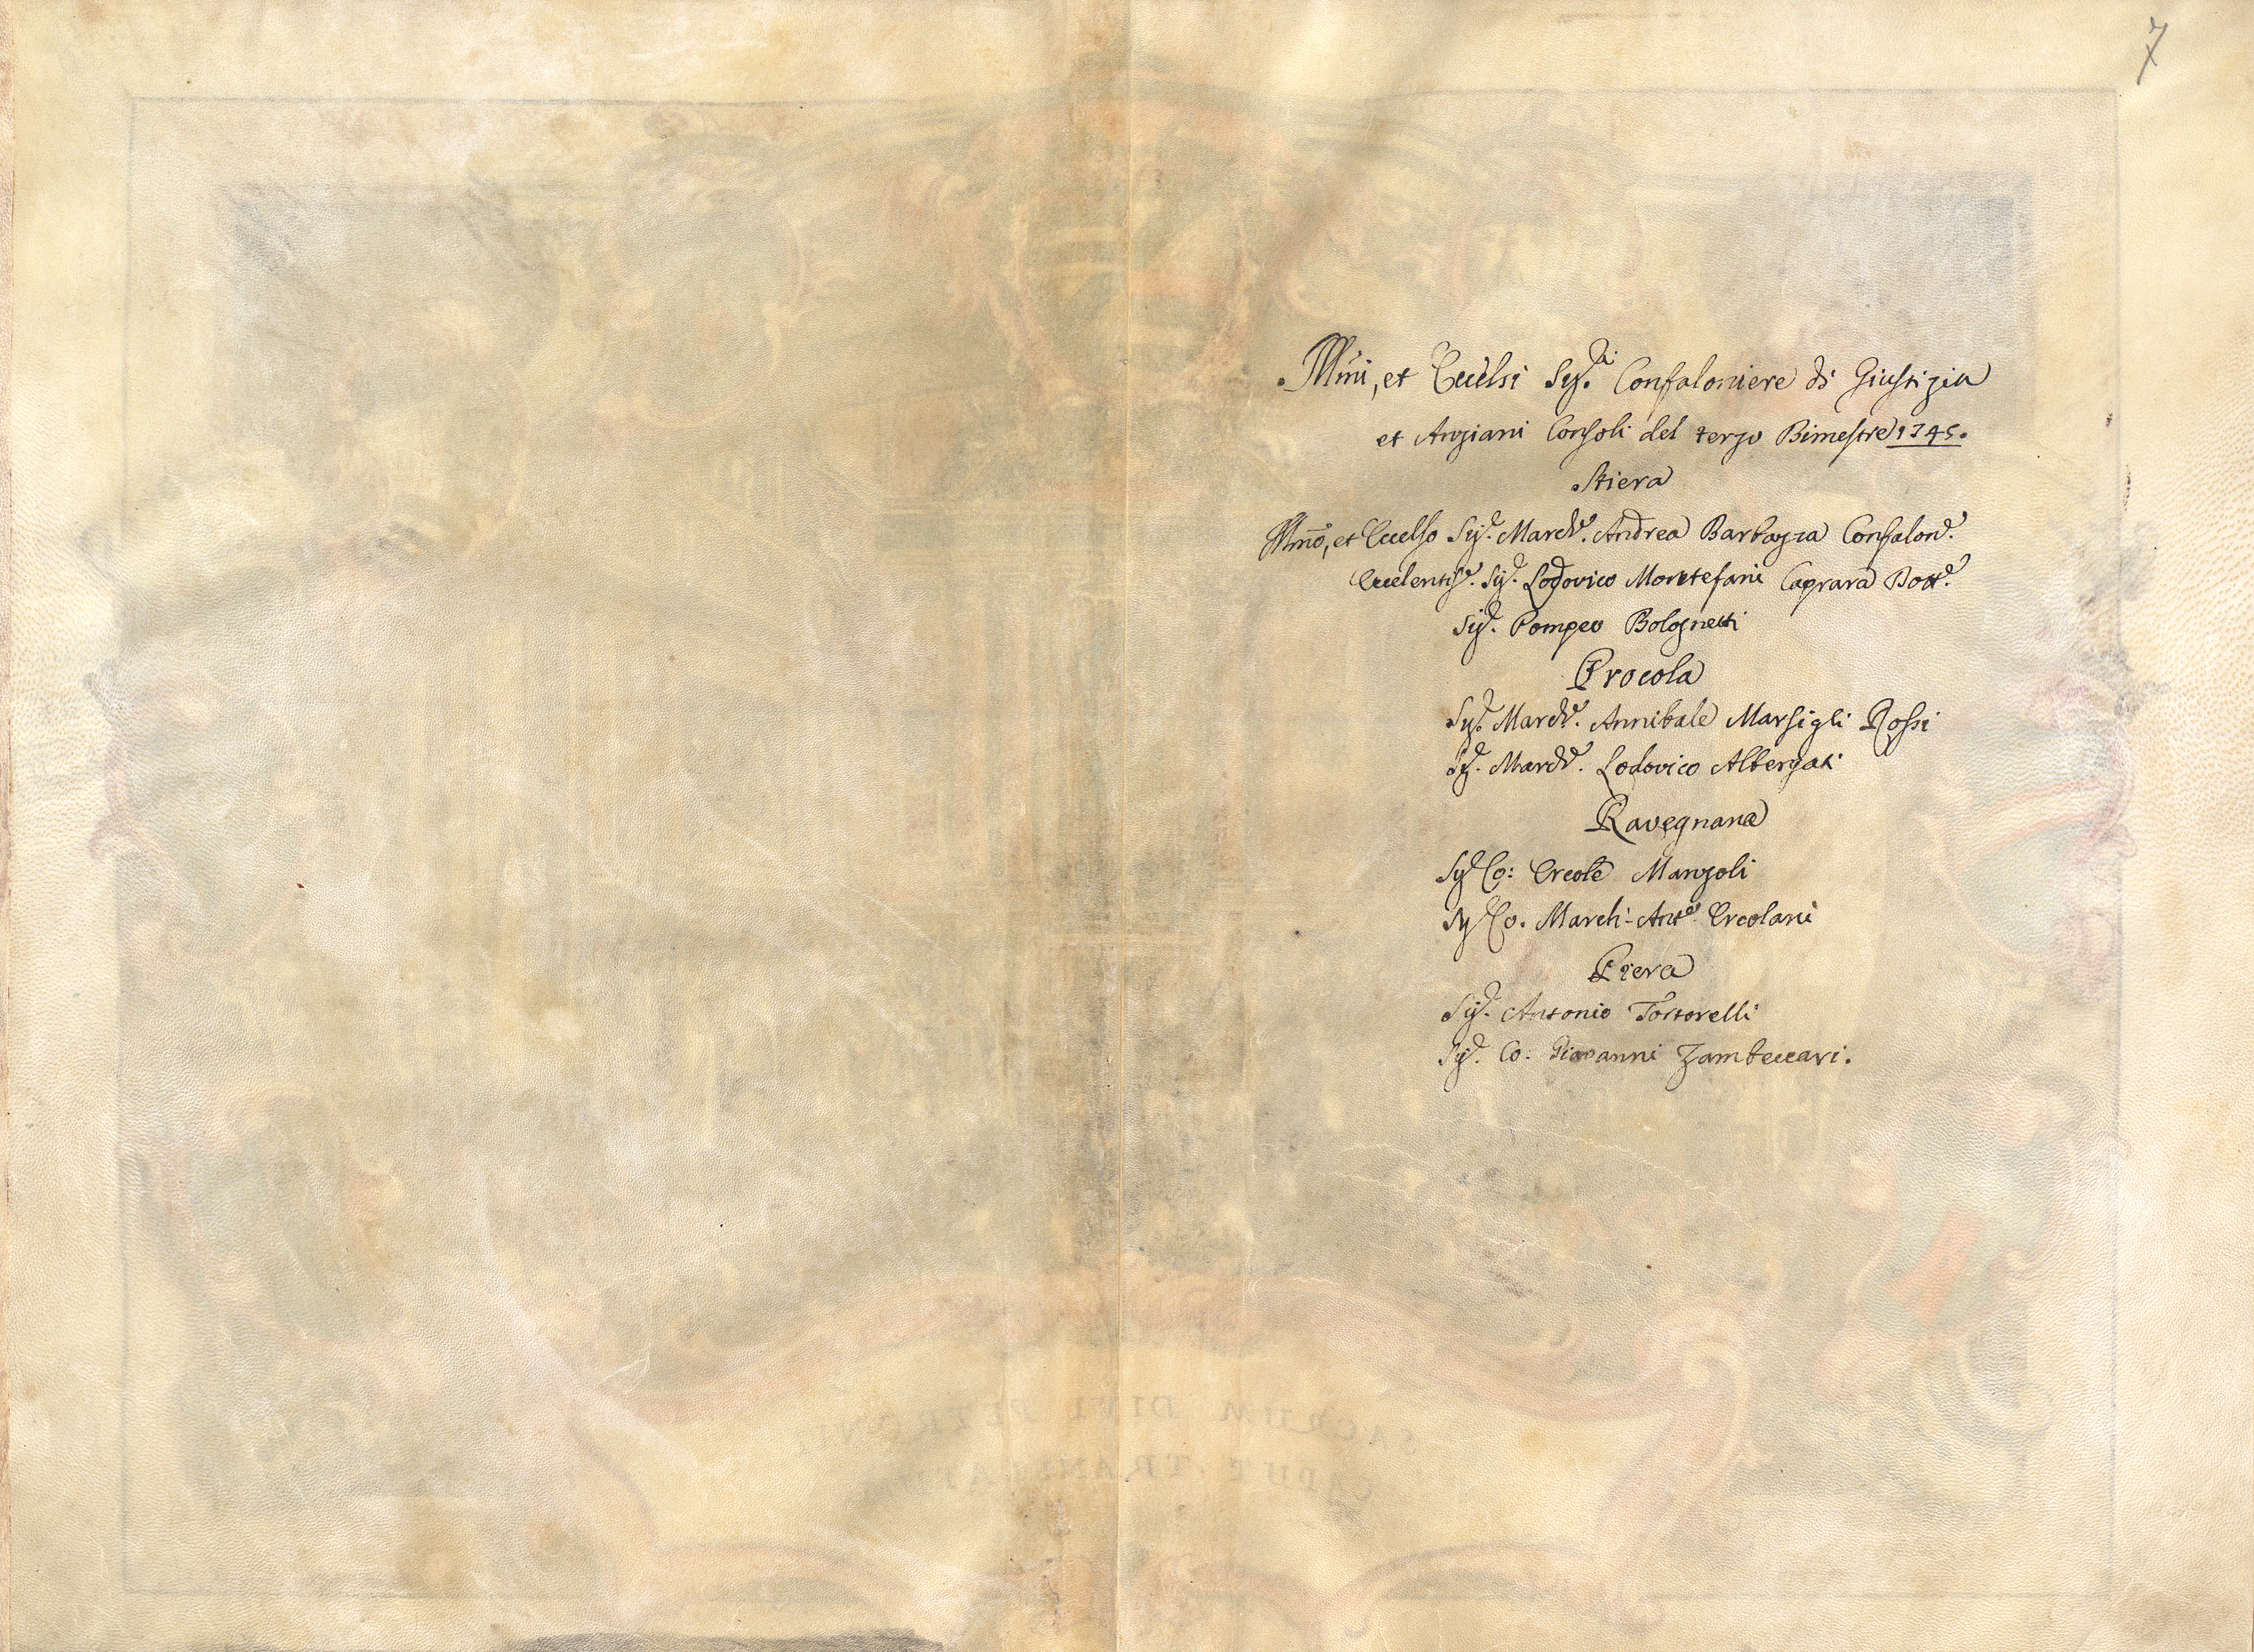 7
Illmi, et Eccelsi Sig.ri Confaloniere di Giustizia
et Anziani Consoli del terzo Bimestre 1745.
Stiera
Illmo, et Eccelso Sig.e March.e Andrea Barbazza Confalon.e
Eccelentis.e Sig.e Lodovico Montefani Caprara Dott.e
Sig.e Pompeo Bolognetti
Procola
Sig.e March.e Annibale Marsigli Rossi
Sig.e March.e Lodovico Albergati
Ravegnana
Sig.e Co: Ercole Manzoli
Sig.e Co. March: Ant.o Ercolani
Piera
Sig.e Antonio Tortorelli
Sig.e Co: Giovanni Zambeccari.
SACRUM DIVI PETRONII
CAPUT TRANSLATUM